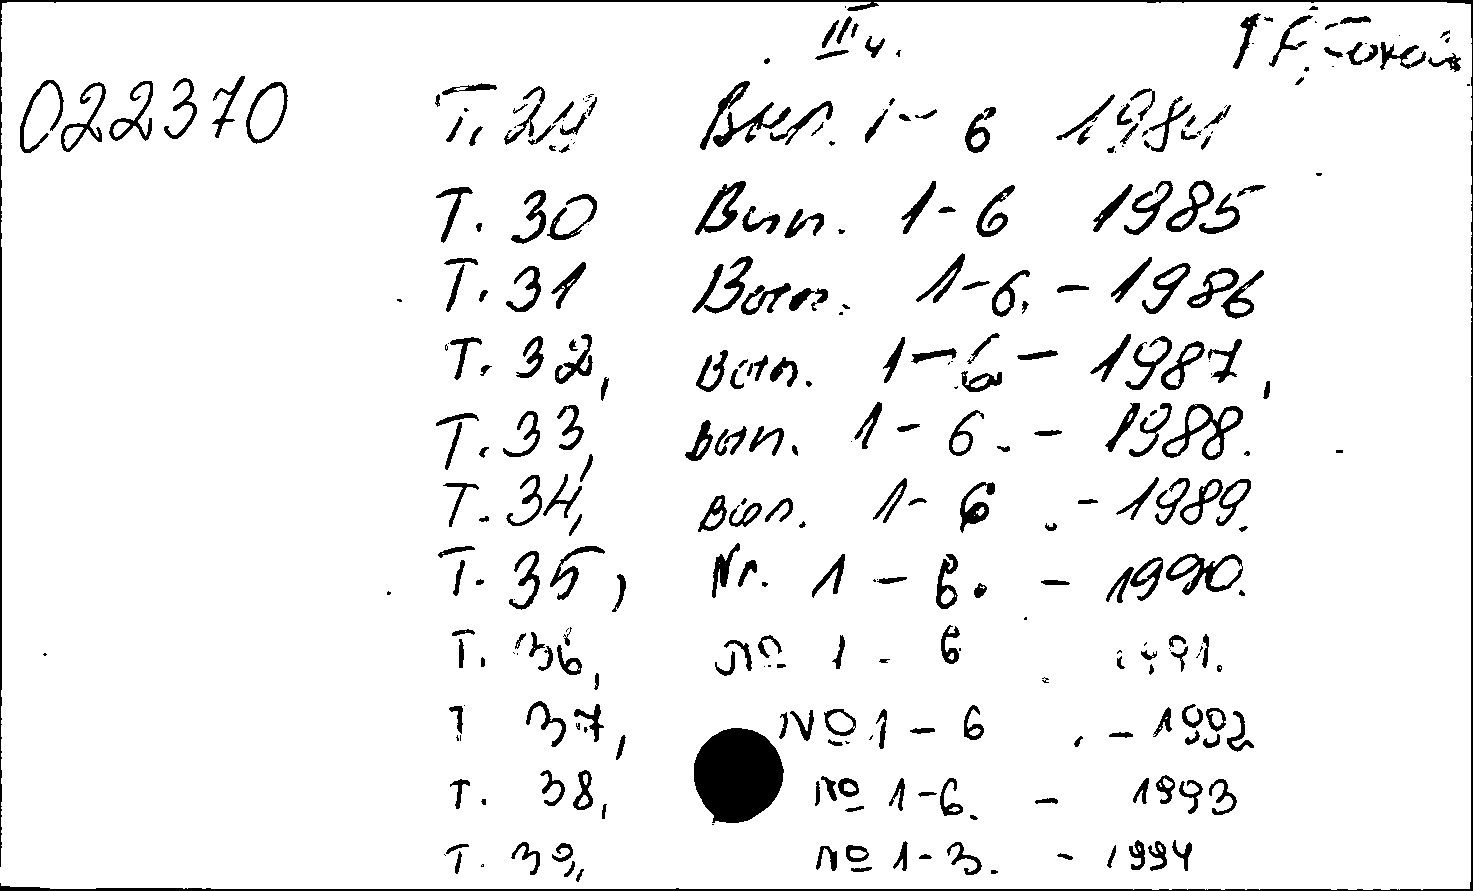 III ч.
022370 Т. 29 Вып. 1-6 1984
Т. 30 Вып. 1-6 1985
Т. 31 Вып. 1-6. - 1986
Т. 32, вып. 1-6 - 1987,
Т. 33, вып. 1-6. - 1988.
Т. 34, вып. 1-6. - 1989.
Т. 35, Nr. 1-6. - 1990.
Т. 36, № 1-6 1991.
Т 37, № 1-6. - 1992
Т. 38, № 1-6. - 1993
Т. 39, № 1-3. - 1994